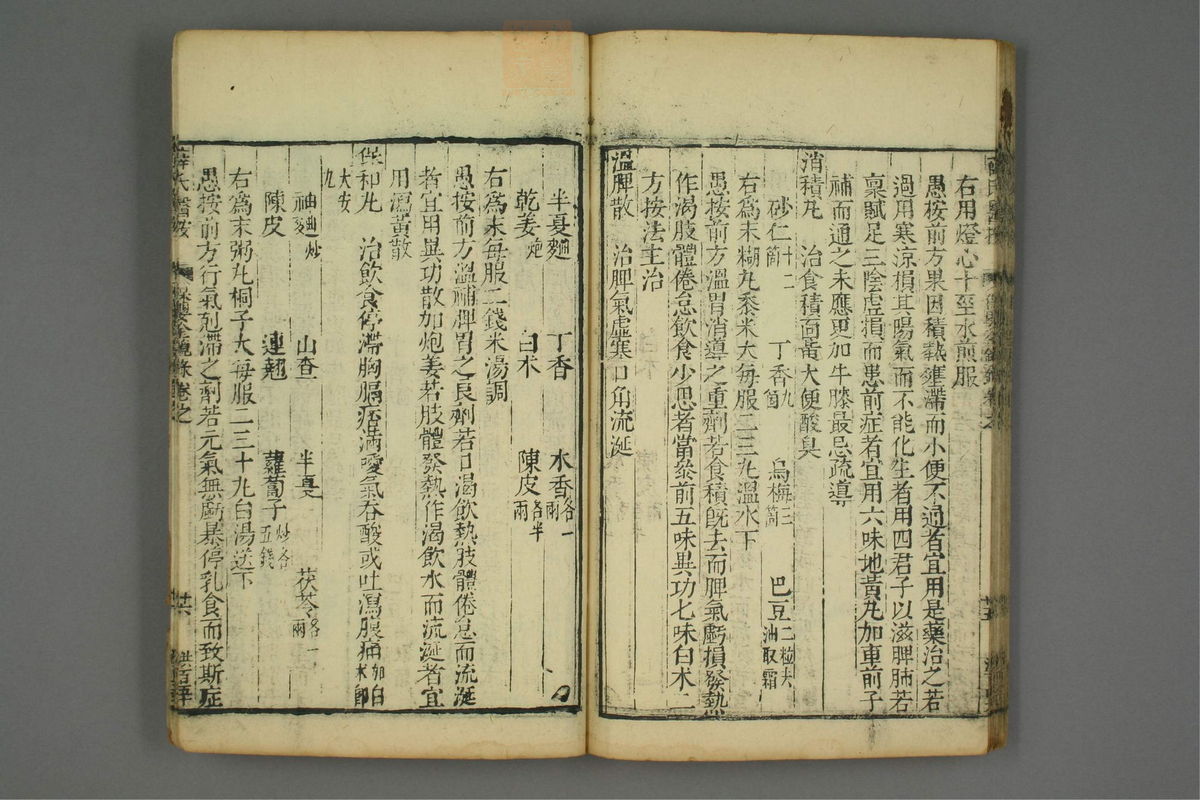 右用燈心十莖水煎服
愚按前方果因積熱壅滯而小便不通者宜用是藥治之若
過用寒涼損其陽氣而不能化生者用四君子以滋脾肺若
稟賦足三陰虛損而患前症者宜用六味地黃丸加車前子
補而通之未應更加牛膝最忌疏導
消積丸 治食積面黃大便酸臭
砂仁十二箇 丁香九箇 烏梅三箇 巴豆二粒去油取霜
右為末糊丸黍米大每服二三丸溫水下
愚按前方溫胃消導之重劑若食積既去而脾氣虧損發熱
作渴肢體倦怠飲食少思者當參前五味異功七味白朮二
方按法主治
溫脾散 治脾氣虛寒口角流涎
半夏麯 丁香 木香各一兩
乾姜炮 白朮 陳皮各半兩
右為末每服二錢米湯調
愚按前方溫補脾胃之良劑若口渴飲熱肢體倦怠而流涎
者宜用異功散加炮姜若肢體發熱作渴飲水而流涎者宜
用瀉黃散
保和丸 治飲食停滯胸膈痞滿噯氣吞酸或吐瀉腹痛加白朮即
大安丸
神麯炒 山查 半夏 茯苓各一兩
陳皮 連翹 蘿蔔子炒各五錢
右為末粥丸桐子大每服二三十丸白湯送下
愚按前方行氣剋滯之劑若元氣無虧暴停乳食而致斯症
薛氏醫按 保嬰金鏡錄卷之 廿六